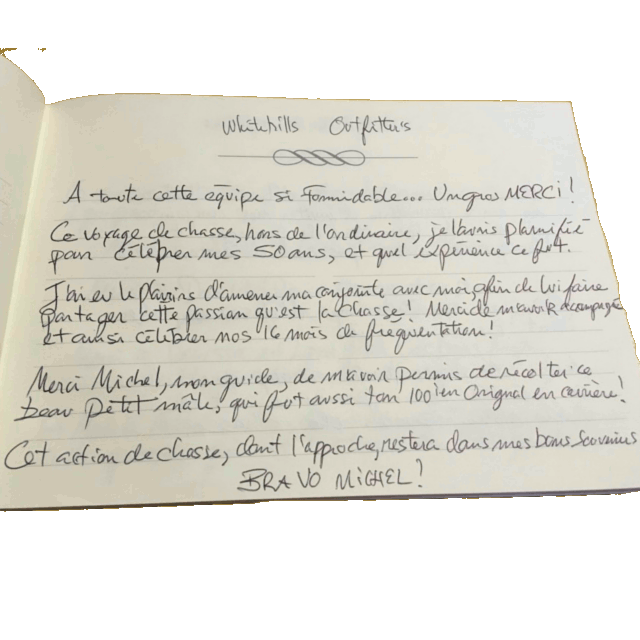 Whitehills Outfitter's
A toute cette équipe si formidable... Un gros MERCI!
Ce voyage de chasse, hors de l'ordinaire, je l'avais planifié
pour célébrer mes 50 ans, et quel expérience ce fut.
J'ai eu le plaisirs d'amener ma conjointe avec moi, afin de lui faire
partager cette passion qu'est la chasse! Merci de m'avoir accompagné
et aussi célébrer nos 16 mois de fréquentation!
Merci Michel, mon guide, de m'avoir permis de récolter ce
beau petit mâle, qui fut aussi ton 100ien Orignal en carrière!
Cet action de chasse, dont l'approche, restera dans mes bons souvenirs
BRAVO MICHEL!